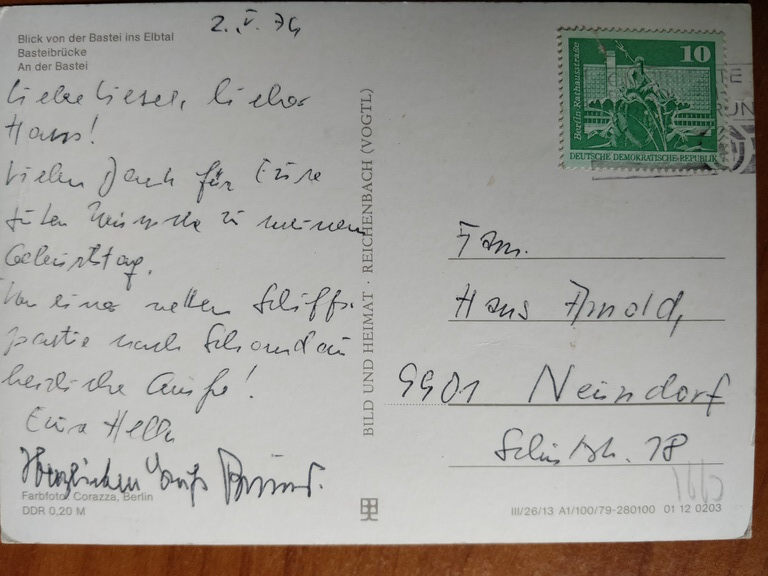 Blick von der Bastei ins Elbtal
Basteibrücke
An der Bastei
Liebe Liesel, lieber
Hans!
Vielen Dank für Eure
guten Wünsche zu meinem
Geburtstag.
Von einer netten Schiffs-
partie nach Schandau
herzliche Grüße!
Eure Hella
Herzlichen Gruß
Farbfoto: Corazza, Berlin
DDR 0,20 M
BILD UND HEIMAT · REICHENBACH (VOGTL)
10
Berlin-Rathausstraße
DEUTSCHE DEMOKRATISCHE REPUBLIK
Fam.
Hans Arnold,
9901 Neundorf
Schulstr. 18
III/26/13 A1/100/79-280100 01 12 0203